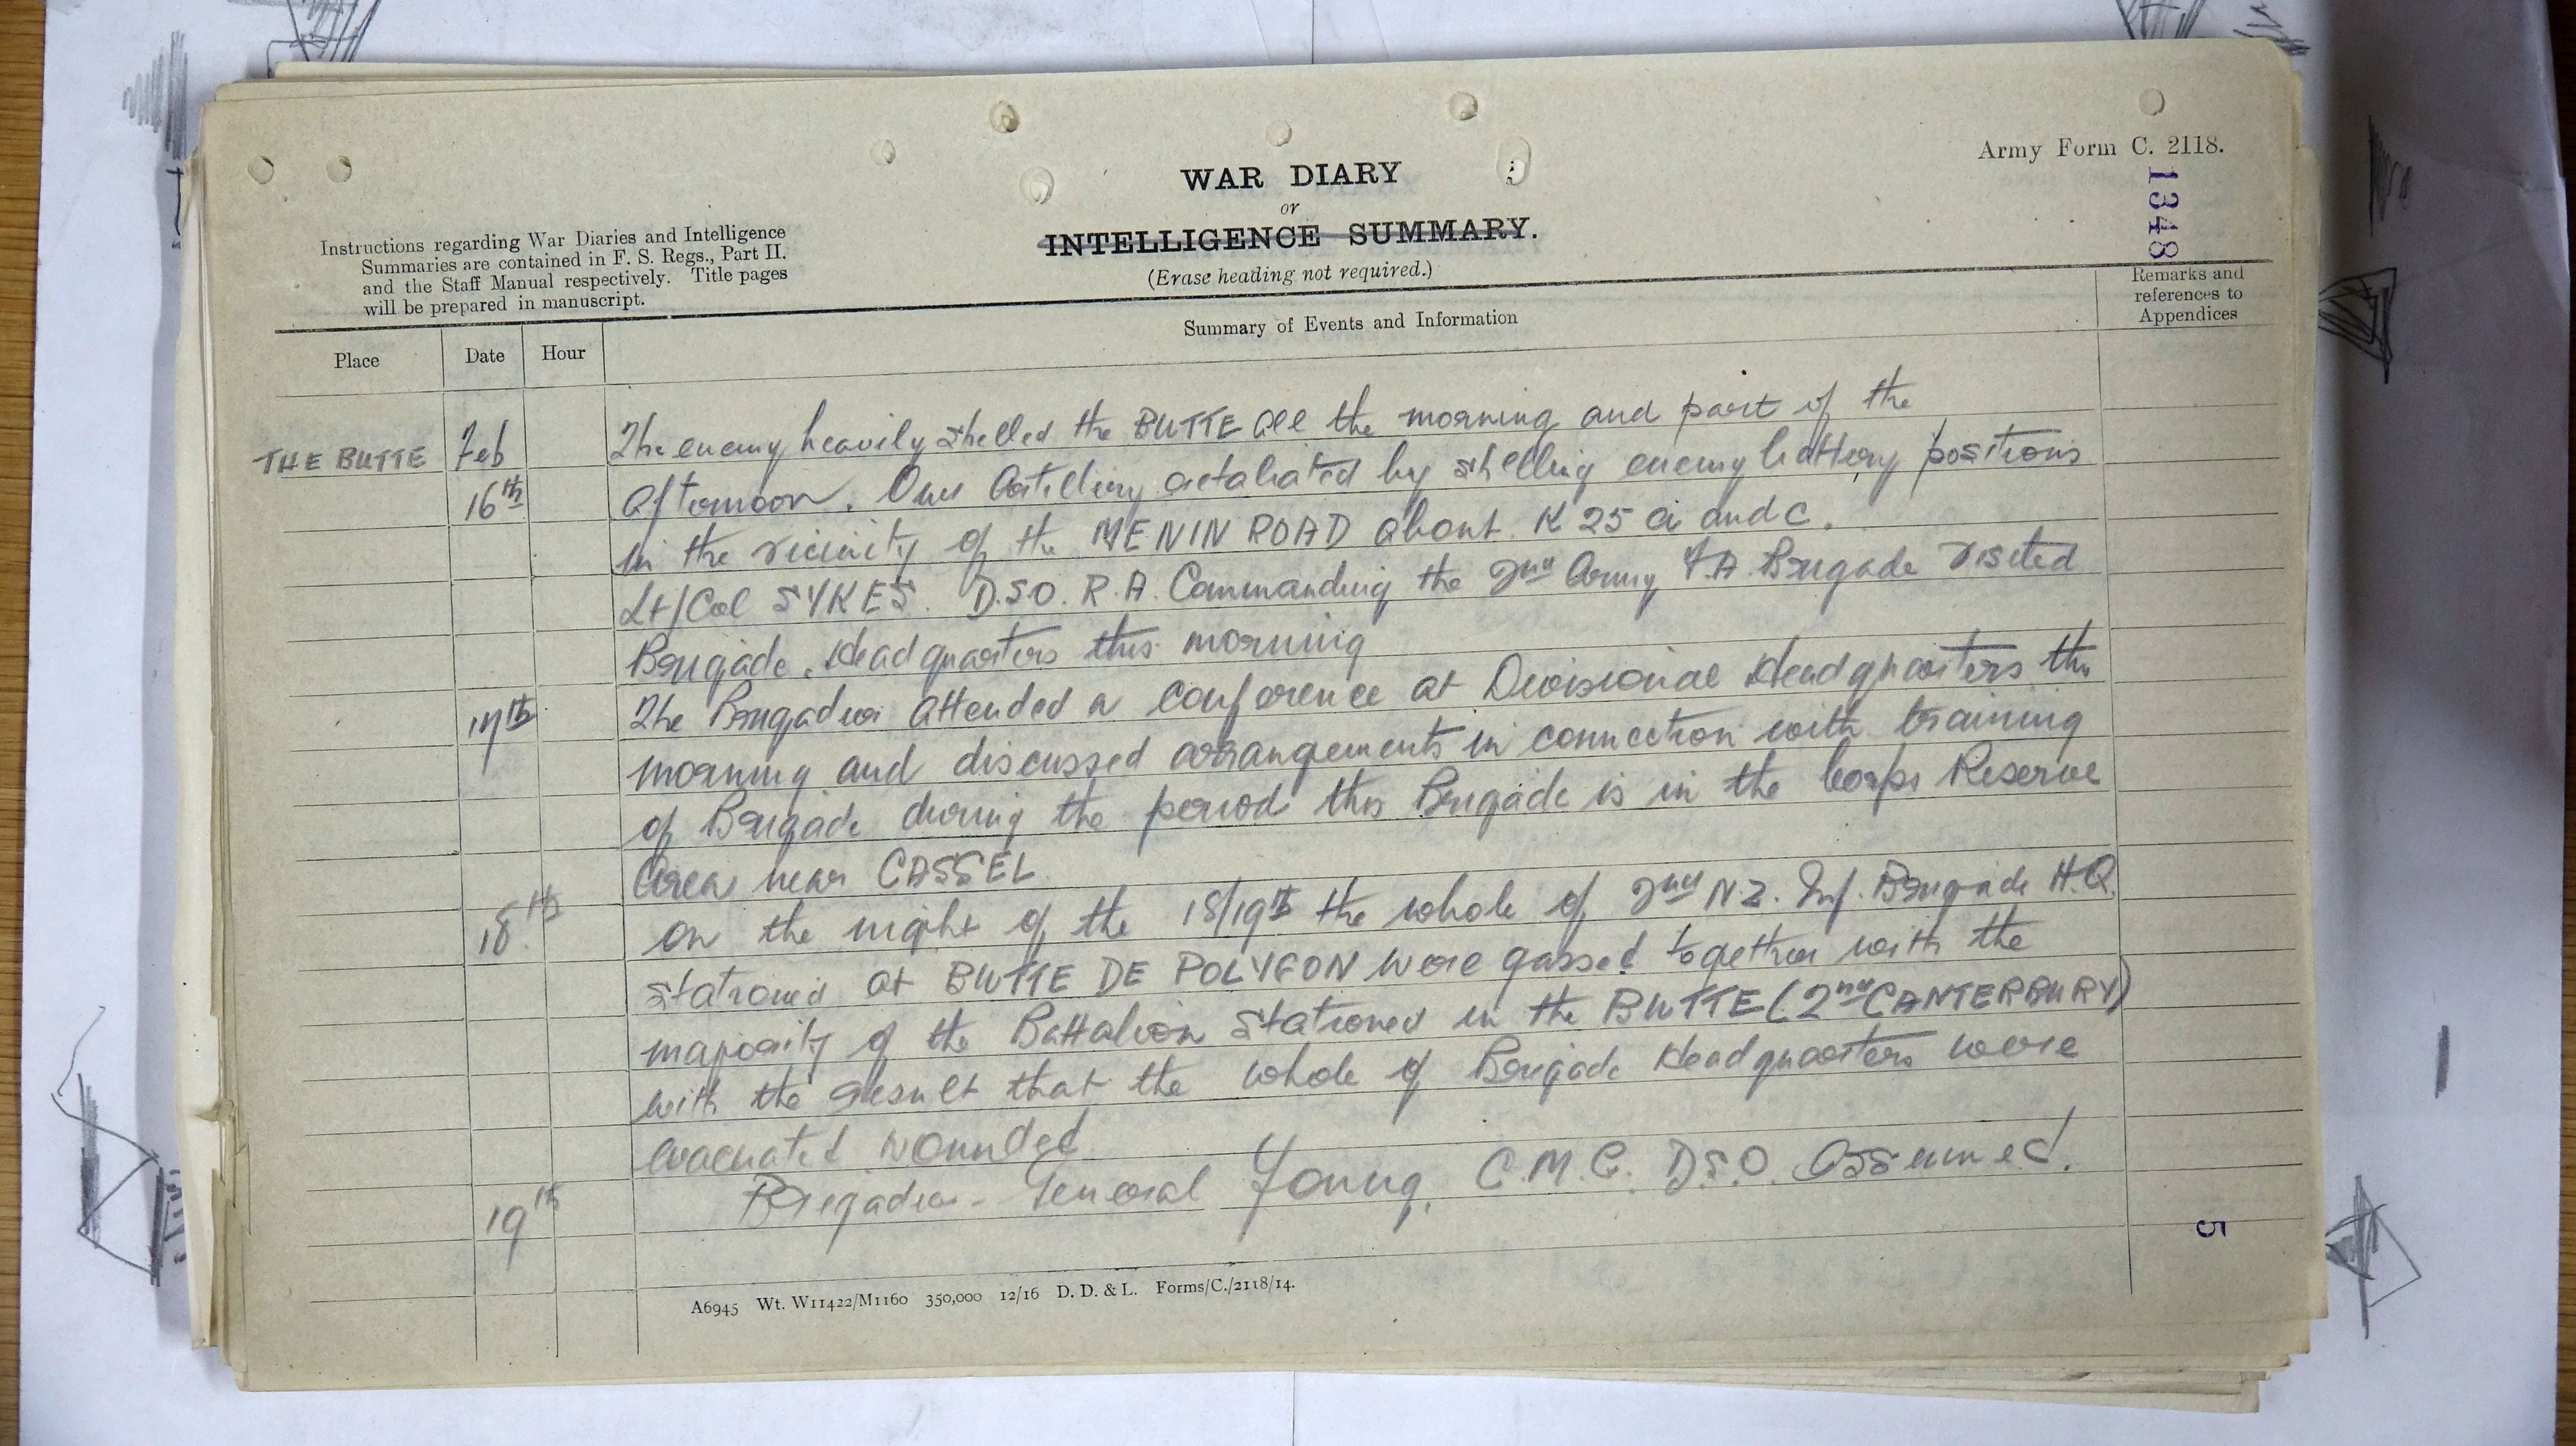 Army Form C. 2118.
1348
WAR DIARY
or
INTELLIGENCE SUMMARY.
(Erase heading not required.)
Instructions regarding War Diaries and Intelligence
Summaries are contained in F. S. Regs., Part II.
and the Staff Manual respectively. Title pages
will be prepared in manuscript.
Place
Date
Hour
Summary of Events and Information
Remarks and
references to
Appendices
THE BUTTE Feb The enemy heavily shelled the BUTTE all the morning and part of the
16th afternoon. Our Artillery retaliated by shelling enemy battery positions
in the vicinity of the MENIN ROAD about K 25 a and c.
Lt/Col SYKES. D.S.O. R.A. Commanding the 2nd Army F.A. Brigade visited
Brigade Headquarters this morning
17th The Brigadier attended a conference at Divisional Headquarters this
morning and discussed arrangements in connection with training
of Brigade during the period this Brigade is in the Corps Reserve
Area near CASSEL
18th On the night of the 18/19th the whole of 2nd N.Z. Inf. Brigade H.Q.
stationed at BUTTE DE POLYGON were gassed together with the
majority of the Battalion stationed in the BUTTE (2nd CANTERBURY)
with the result that the whole of Brigade Headquarters were
evacuated wounded
19th Brigadier-General Young, C.M.G. D.S.O. assumed.
5
A6945 Wt. W11422/M1160 350,000 12/16 D. D. & L. Forms/C./2118/14.